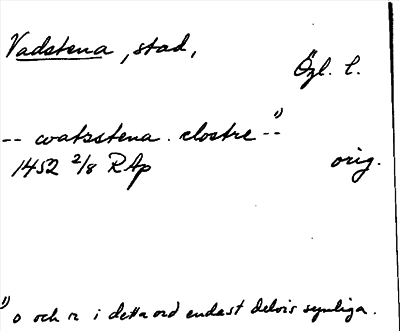 Vadstena, stad,
Ögl. l.
-- watzstena clostre 1) --
1452 2/8 RAp orig.
1) o och r i detta ord endast delvis synliga.